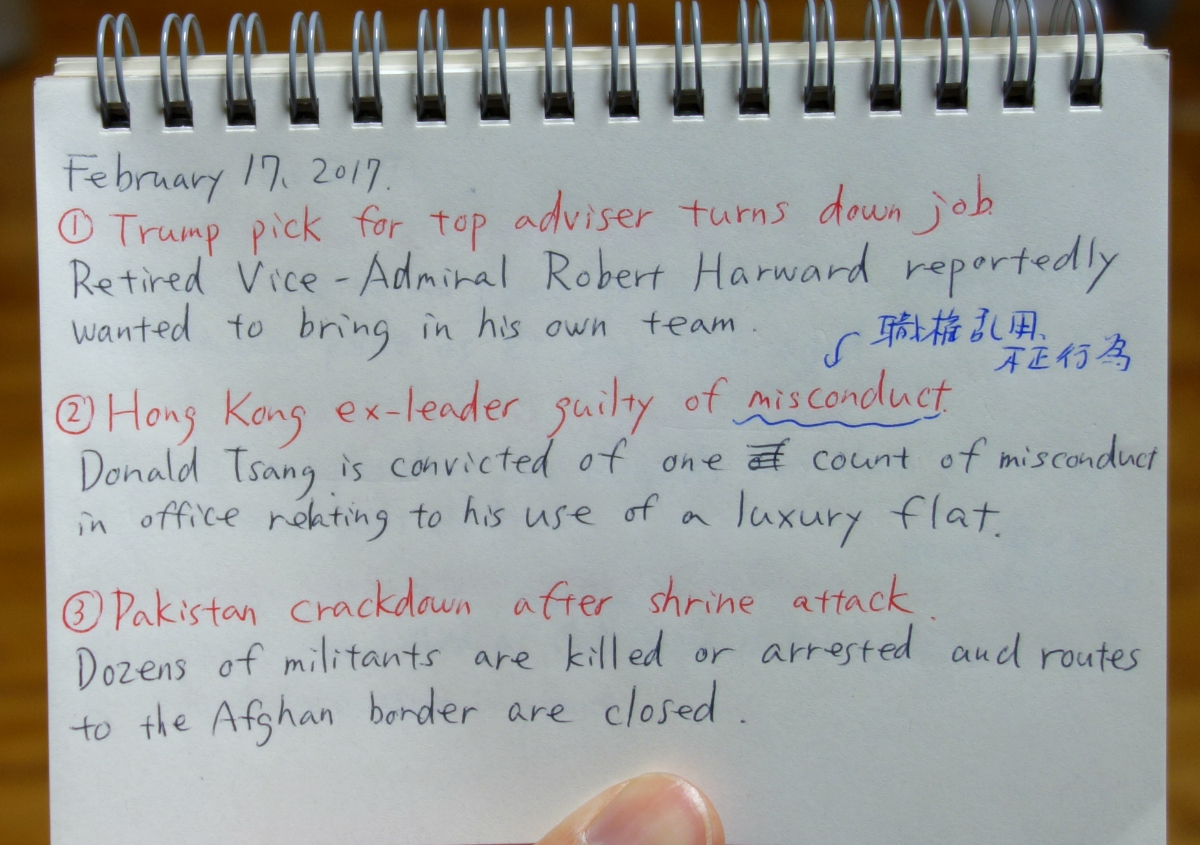 February 17, 2017.
① Trump pick for top adviser turns down job.
Retired Vice-Admiral Robert Harward reportedly
wanted to bring in his own team.
職権乱用、
不正行為
② Hong Kong ex-leader guilty of misconduct.
Donald Tsang is convicted of one count of misconduct
in office relating to his use of a luxury flat.
③ Pakistan crackdown after shrine attack.
Dozens of militants are killed or arrested and routes
to the Afghan border are closed.